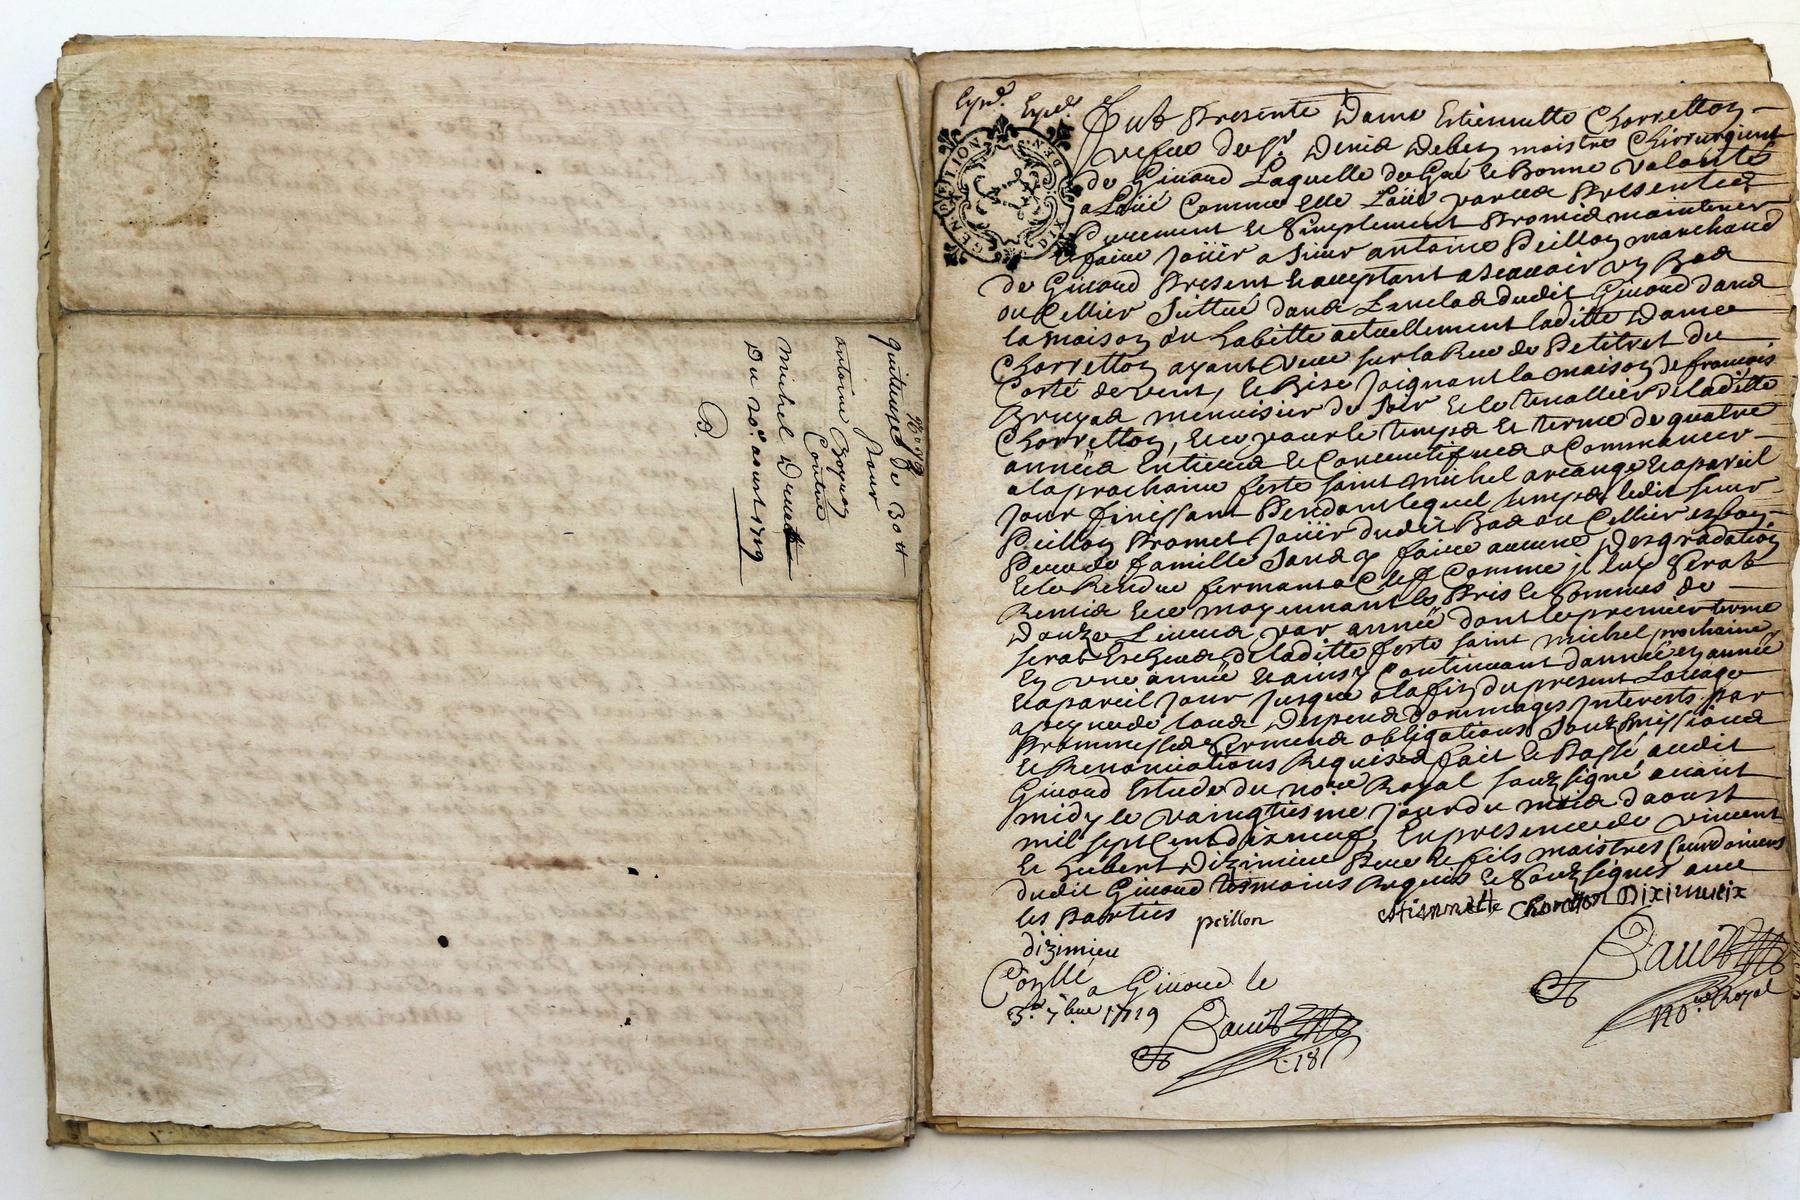 quittance de 30 tt
pour
antoine
Contre
michel
Du 20e aoust 1719
B.
Expéd. Expéd.
GENERALITE LION
DEN DIX
Fut Presente Dame Estiennette Chorretton
vefue de sr. Denis Debes maistre Chirurgient
de Giuord Laquelle de Gré & Bonne volonté
a Loüé Comme elle Loüe par ces Presentes
Purement & Simplement Promis maintenir
& faire Joüir a sieur antoine Peillon marchand
de Giuord Present & acceptant a scauoir un Bas
ou Cellier Scittué dans Lenclos dudit Giuord dans
la maison ou habitte actuellement laditte Dame
Chorretton ayant veue sur la Rue de Petitret du
Costé de vent, & Bise Joignant la maison de françois
Bruyas menuisier de soir & le Cuallier de laditte
Chorretton, & ce pour le temps & terme de quatre
années Entieres & Consecutifues a Commancer
a la prochaine feste saint michel arcange & a pareil
Jour finissant Pendant lequel temps ledit sieur
Peillon Promet Joüir dudit Bas ou Cellier en bon
Pere de famille Sans y faire aucune Desgradation
& le Rendre fermant a Cleff Comme il luy Serat
Remis & ce moyennant le Pris & Somme de
Douze Liures par année dont le premier terme
serat Escheus de laditte feste saint michel prochaine
En une année & ainsy Continuant dannée en année
& a pareil Jour Jusque a la fin du present Loüage
a peyne de tous Despens dommages Interests par
Prommesses Serments obligations Soubzmissions
& Renonciations Requises fait & Passé audit
Giuord Estude du nore Royal soubzsigné auant
midy le vaingtiesme Jour du mois daoust
mil sept Cent dix neuf, En presence de vincent
& hubert Dizimieu Pere & fils maistres Courdoniers
dudit Giuord tesmoins Requis & Soubzsignés auec
les Parties peillon
etiennette Choretton Diximieix
dizimieu
Conllé, a Giuord le
3e. 7bre 1719
no.re Royal